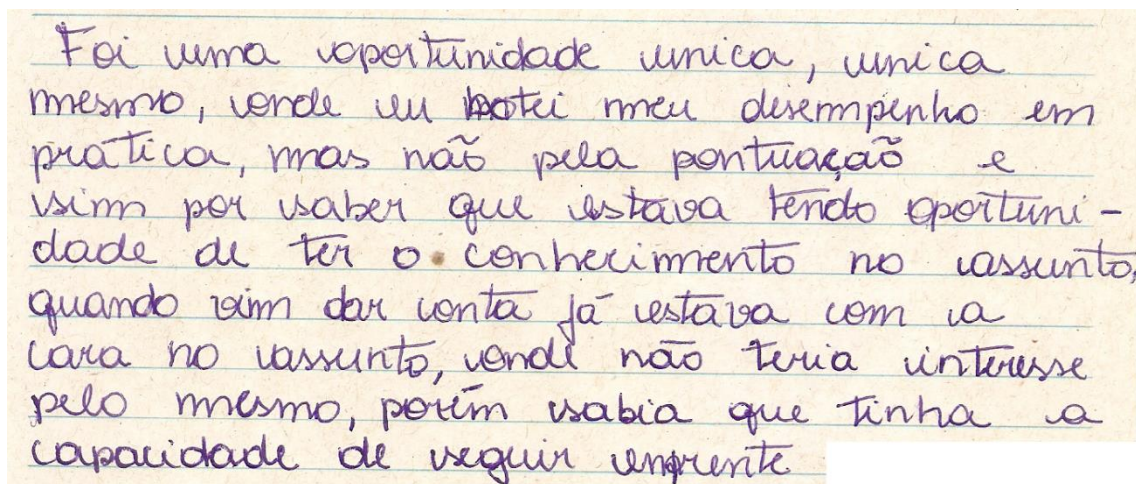 Foi uma oportunidade unica, unica
mesmo, onde eu botei meu desempenho em
prática, mas não pela pontuação e
sim por saber que estava tendo oportuni-
dade de ter o conhecimento no assunto,
quando vim dar conta já estava com a
cara no assunto, onde não teria interesse
pelo mesmo, porém sabia que tinha a
capacidade de seguir emfrente